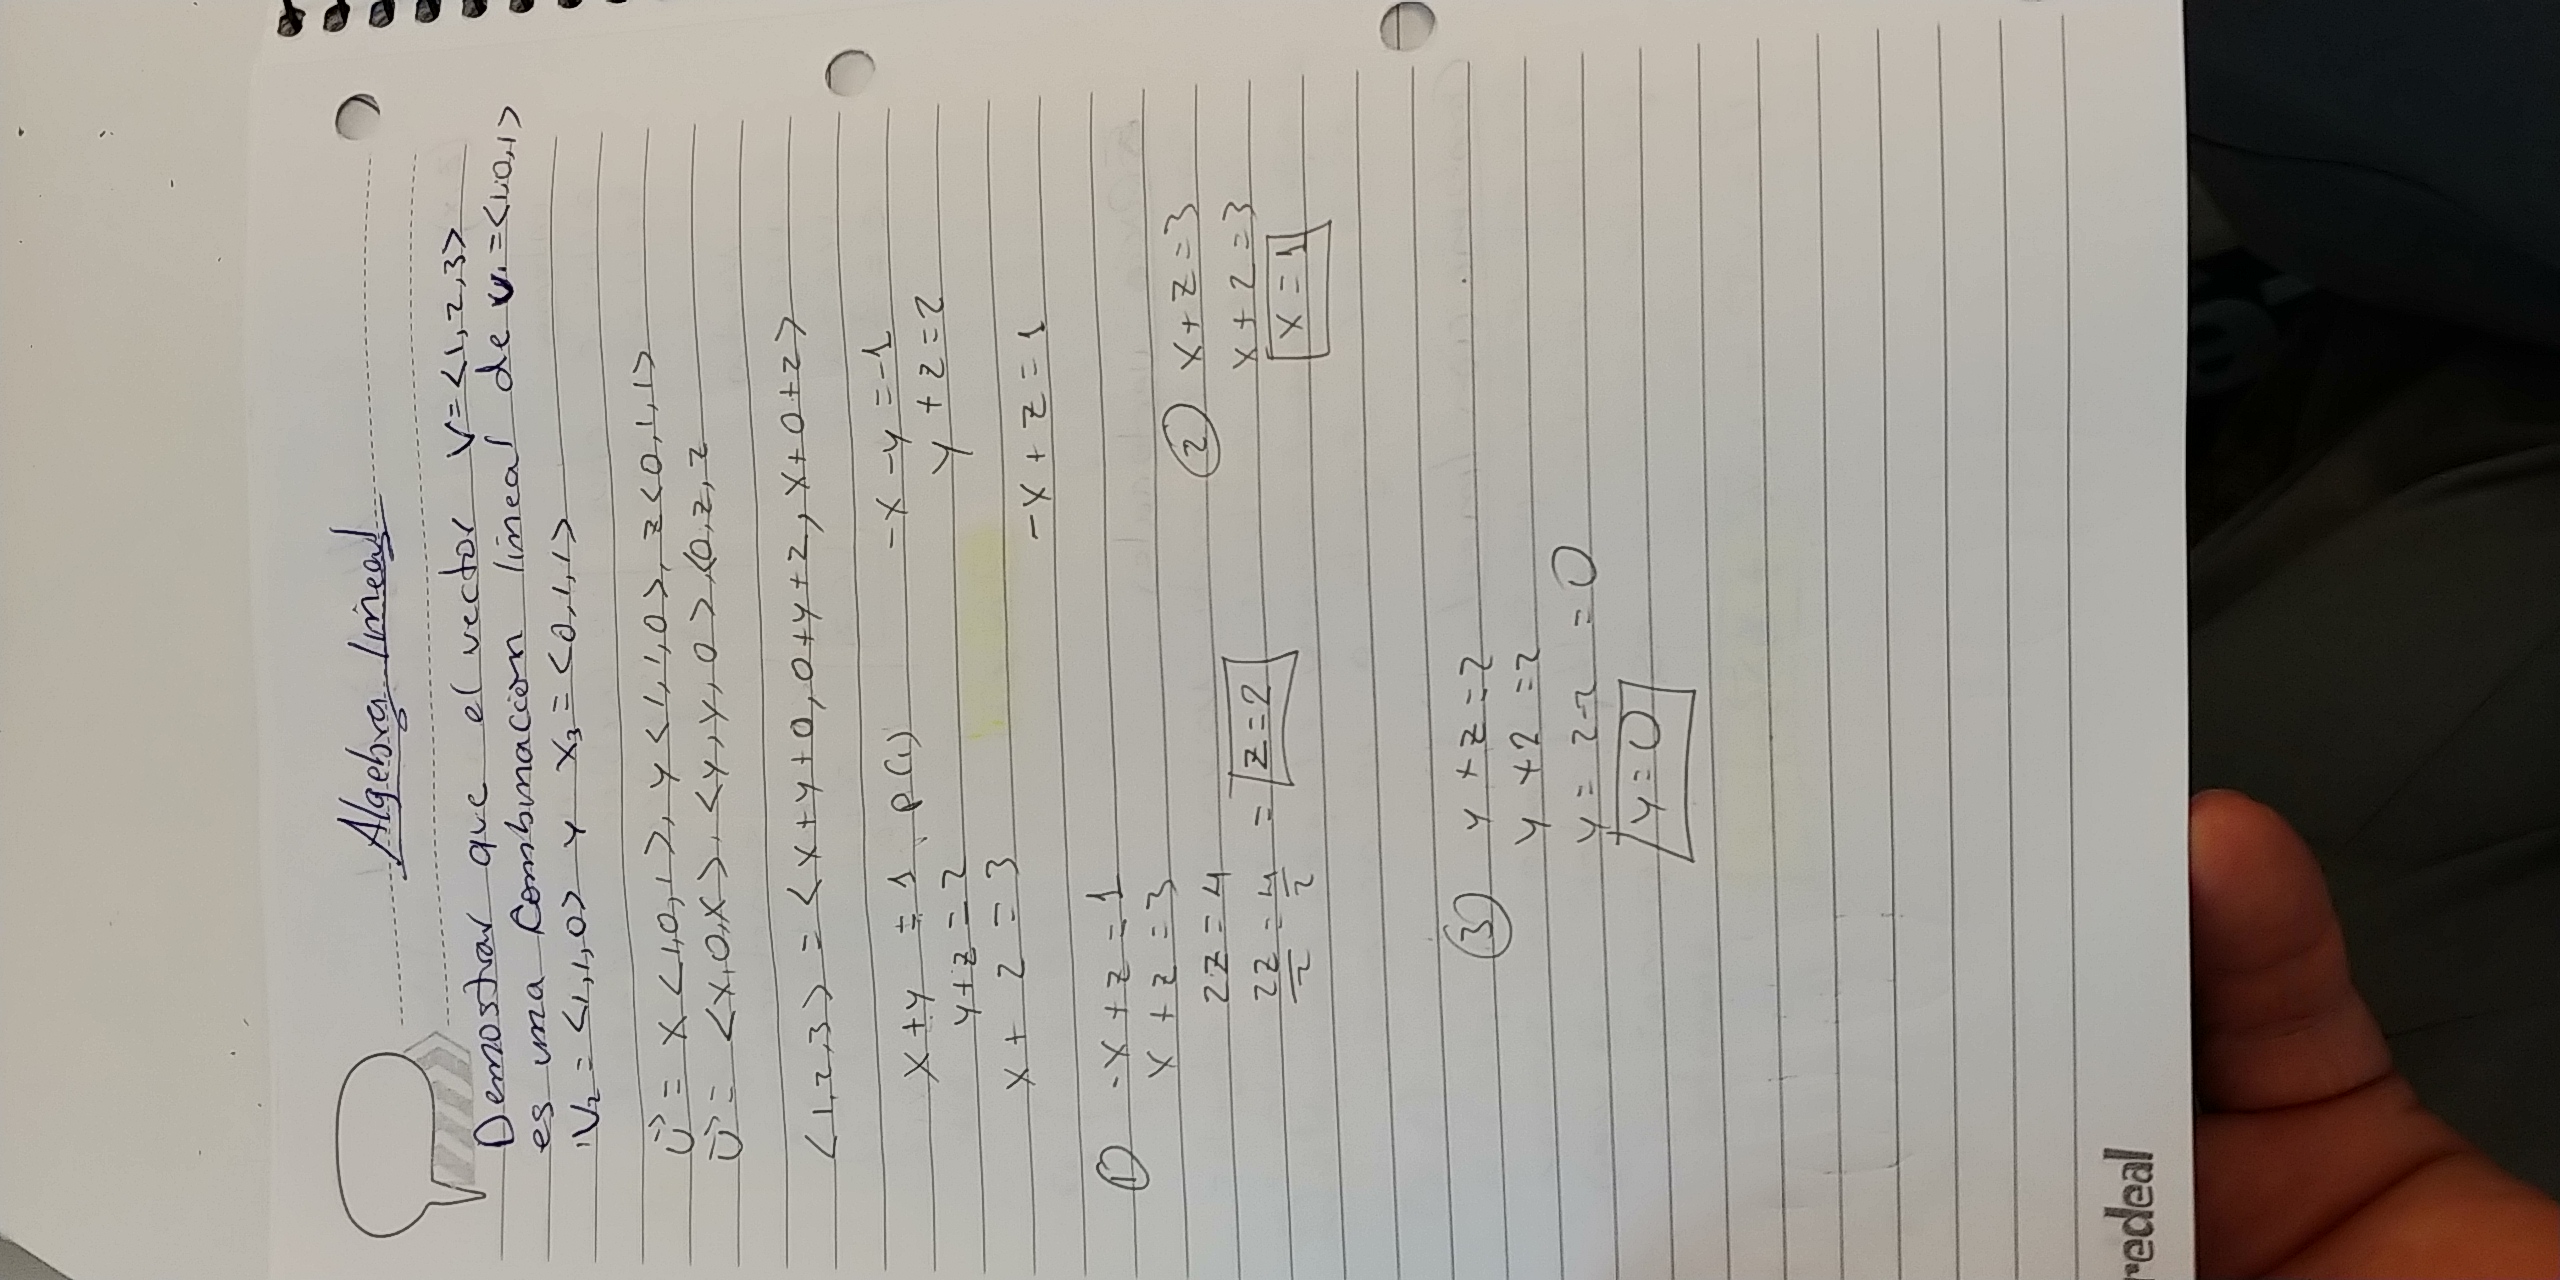 Algebra lineal
Demostrar que el vector V=<1,2,3>
es una combinación lineal de v1=<1,0,1>
V2=<1,1,0> y x3=<0,1,1>
U⃗ = x<1,0,1>, y<1,1,0>, z<0,1,1>
U⃗ = <x,0,x>, <y,y,0>,<0,z,z
<1,2,3> = <x+y+0, 0+y+z, x+0+z>
x+y = 1 P(1)
y+z=2
x+ z = 3
-x-y=-1
y+z=2
-x+z=1
① -x+z=1
x+z=3
2z=4
2z/2=4/2 = z=2
② x+z=3
x+2=3
x=1
③ y+z=2
y+2=2
y=2-2=0
y=0
redeal